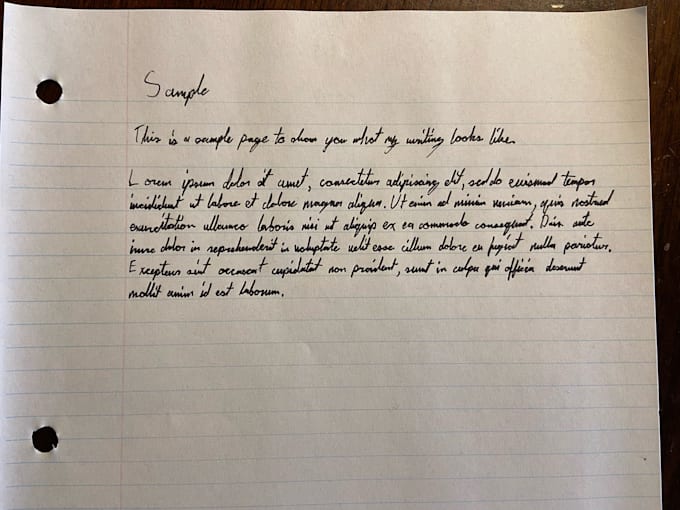 Sample
This is a sample page to show you what my writing looks like.
Lorem ipsum dolor sit amet, consectetur adipiscing elit, sed do euismod tempor
incididunt ut labore et dolore magna aliqua. Ut enim ad minim veniam, quis nostrud
exercitation ullamco laboris nisi ut aliquip ex ea commodo consequat. Duis aute
irure dolor in reprehenderit in voluptate velit esse cillum dolore eu fugiat nulla pariatur.
Excepteur sint occaecat cupidatat non proident, sunt in culpa qui officia deserunt
mollit anim id est laborum.